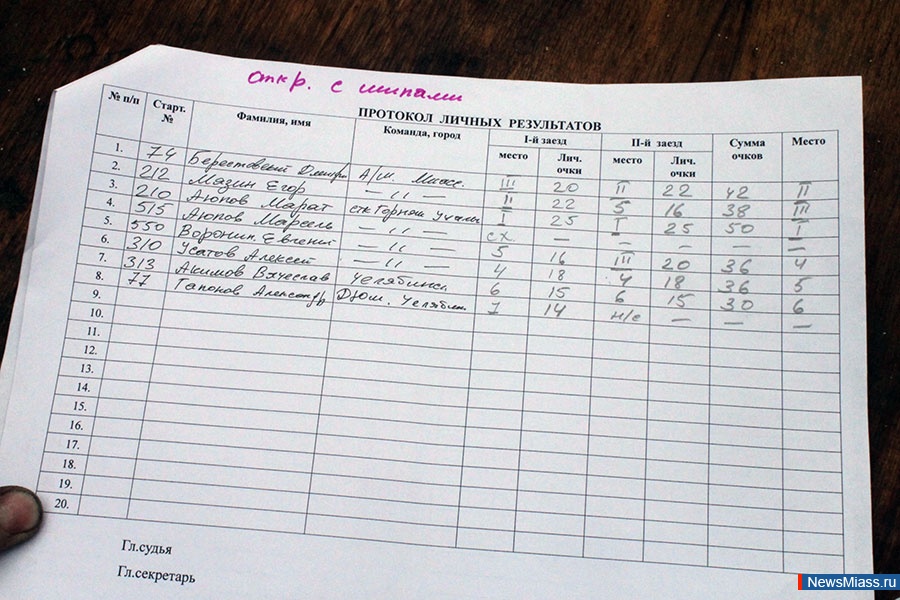 откр. с шипами
ПРОТОКОЛ ЛИЧНЫХ РЕЗУЛЬТАТОВ
№ п/п Старт. № Фамилия, имя Команда, город I-й заезд II-й заезд Сумма очков Место
место Лич. очки место Лич. очки
1. 74 Берестовский Дмитри А/ш. Миасс. III 20 II 22 42 II
2. 212 Мязин Егор — " — II 22 5 16 38 III
3. 210 Аюпов Марат стк Горняк Учалы I 25 I 25 50 I
4. 515 Аюпов Марсель — " — сх — — — — —
5. 550 Воронин Евгений — " — 5 16 III 20 36 4
6. 310 Усатов Алексей — " — 4 18 4 18 36 5
7. 313 Акимов Вячеслав Челябинск. 6 15 6 15 30 6
8. 77 Тапонов Александр Дюш. Челябинск. 7 14 н/с — — —
9.
10.
11.
12.
13.
14.
15.
16.
17.
18.
19.
20.
Гл.судья
Гл.секретарь
NewsMiass.ru